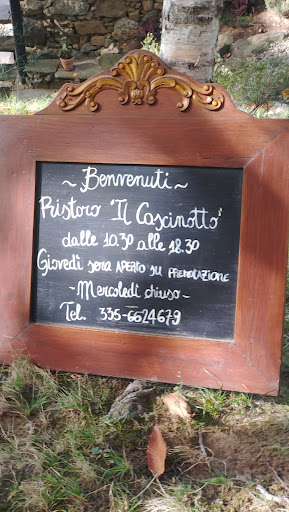 ~ Benvenuti ~
Ristoro "Il Cascinotto"
dalle 10.30 alle 18.30
Giovedì sera APERTO SU PRENOTAZIONE
- Mercoledì chiuso -
Tel. 335-6624679